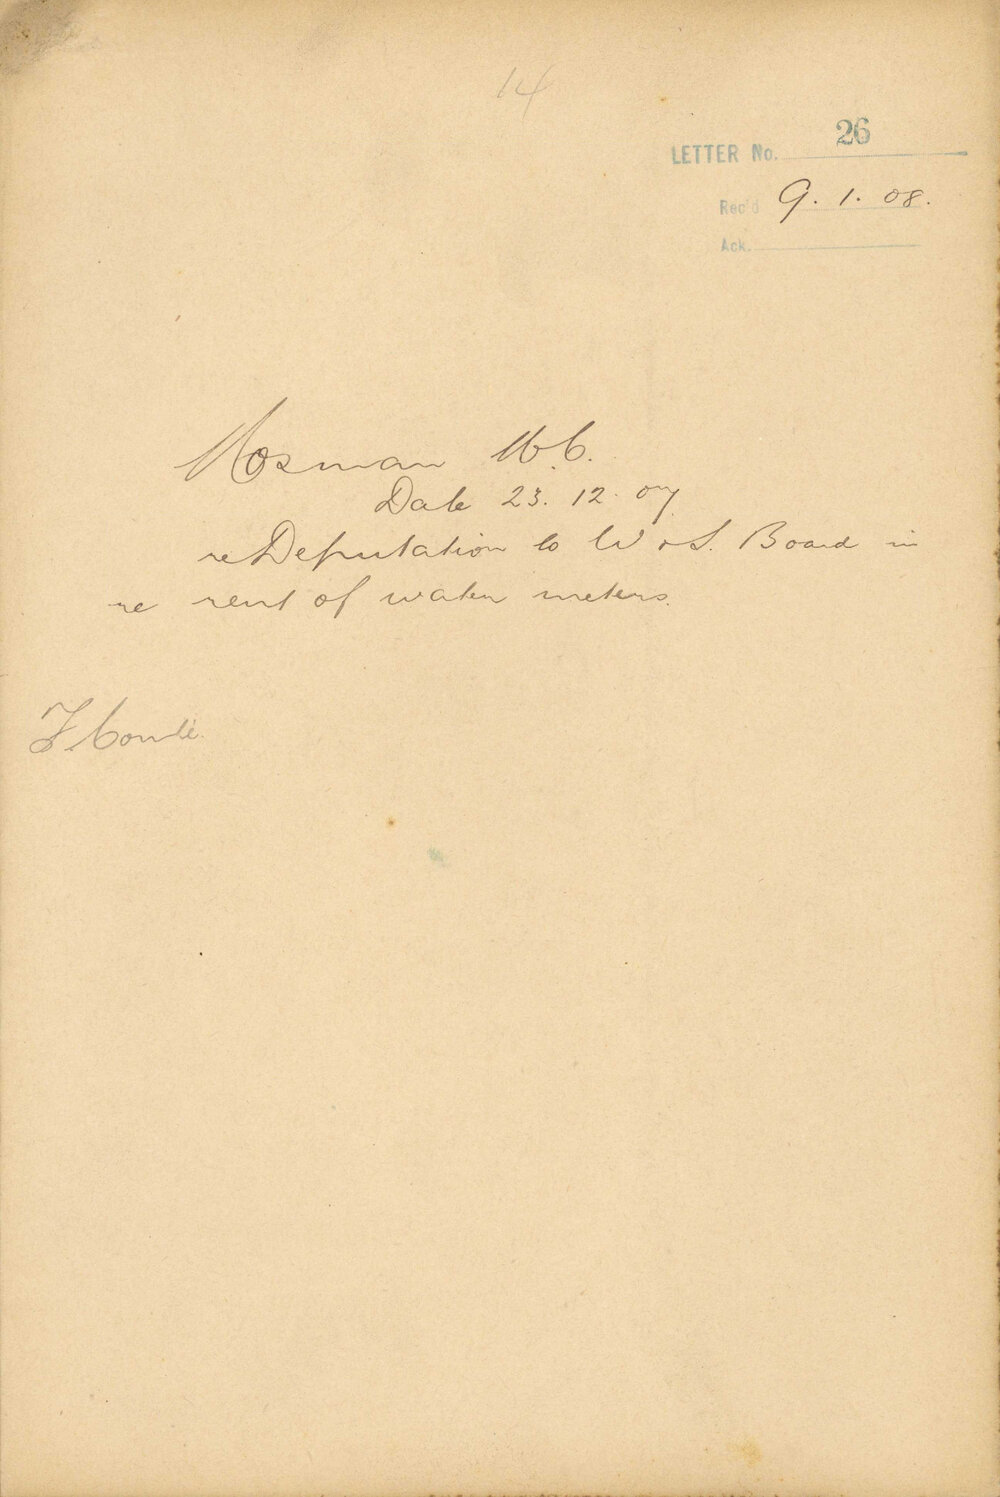 14
LETTER No. 26
Rec'd 9. 1. 08.
Ack.
Mosman M.C.
Date 23. 12. 07
re Deputation to W & S. Board in
re rent of water meters.